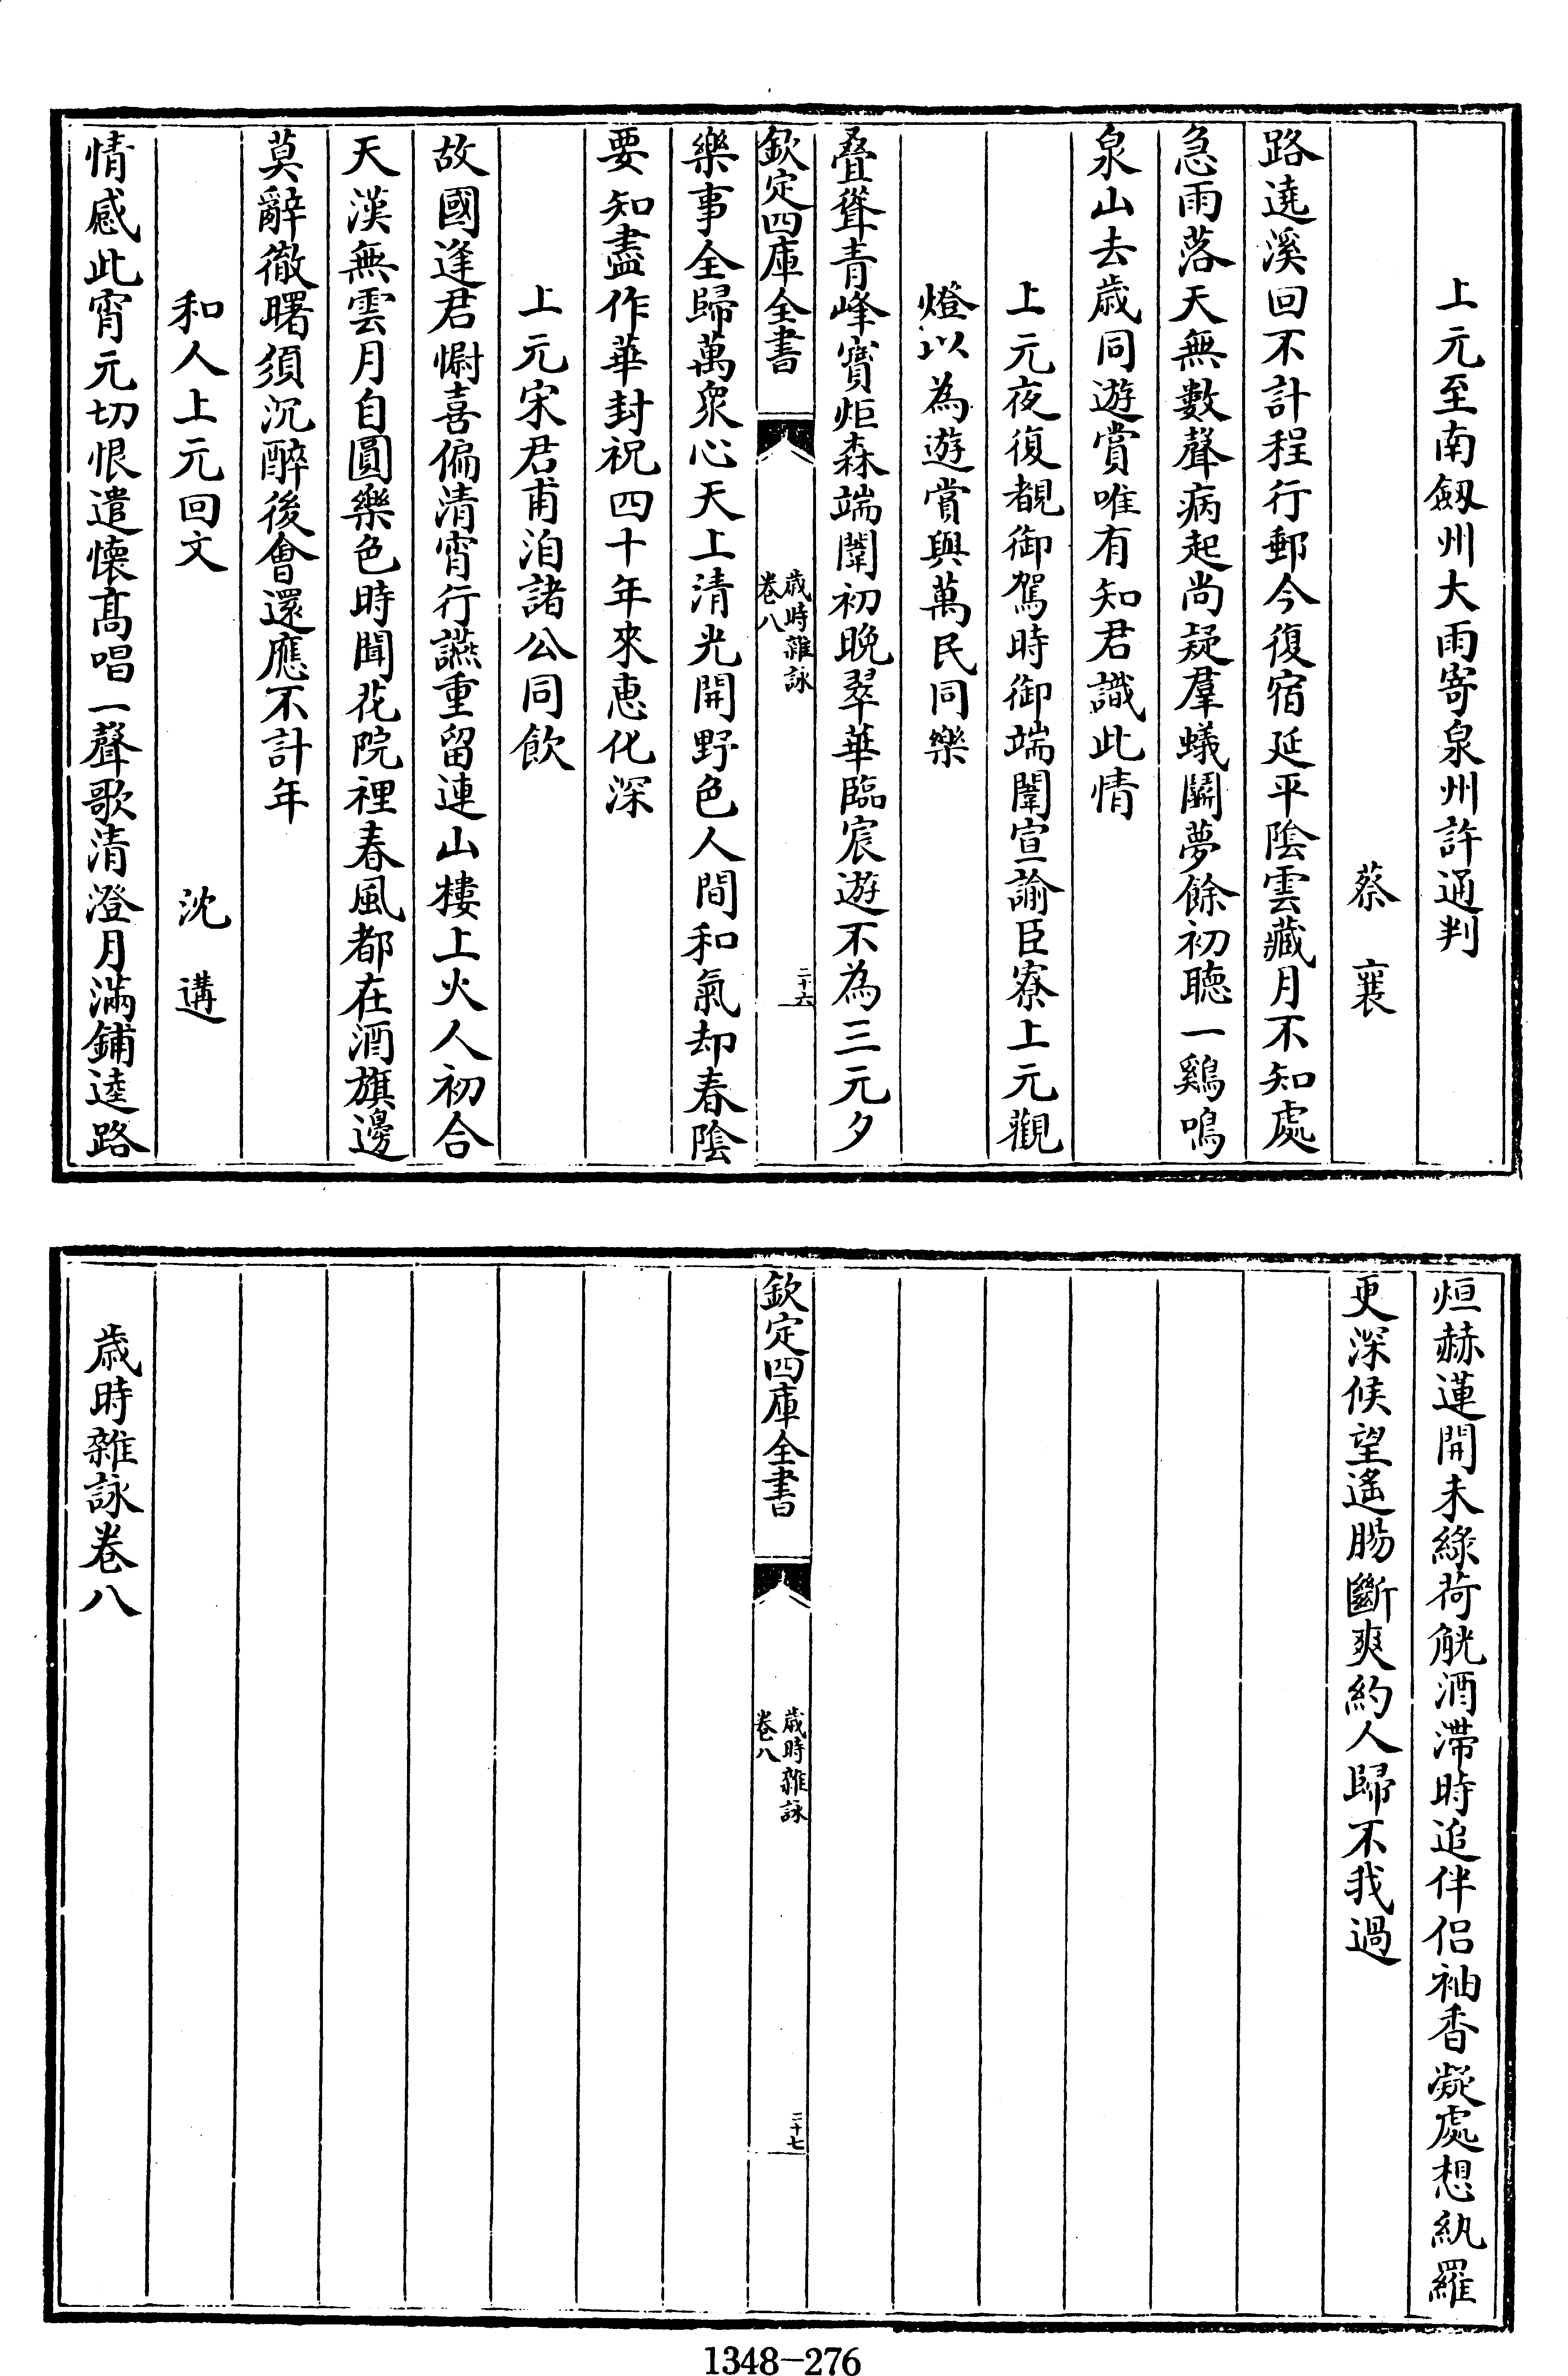 上元至南劔州大雨寄泉州許通判
蔡襄
路遶溪回不計程行郵今復宿延平陰雲藏月不知處
急雨落天無數聲病起尚疑羣蟻鬭夢餘初聴一鷄鳴
泉山去歲同遊賞唯有知君識此情
上元夜復覩御駕時御端闈宣諭臣寮上元觀
燈以為遊賞與萬民同樂
疊聳青峰寳炬森端闈初晚翠華臨宸遊不為三元夕
欽定四庫全書
歲時雜詠
卷八
二十六
樂事全歸萬衆心天上清光開野色人間和氣却春陰
要知盡作華封祝四十年來惠化深
上元宋君甫洎諸公同飲
故國逢君慰喜偏清宵行讌重留連山樓上火人初合
天漢無雲月自圓樂色時聞花院裡春風都在酒旗邊
莫辭徹曙須沉醉後會還應不計年
和人上元回文
沈遘
情感此宵元切恨遣懐髙唱一聲歌清澄月滿鋪逵路
烜赫蓮開未綠荷觥酒滯時追伴侶袖香凝處想紈羅
更深候望遙腸斷爽約人歸不我過
欽定四庫全書
歲時雜詠
卷八
二十七
歲時雜詠卷八
1348-276